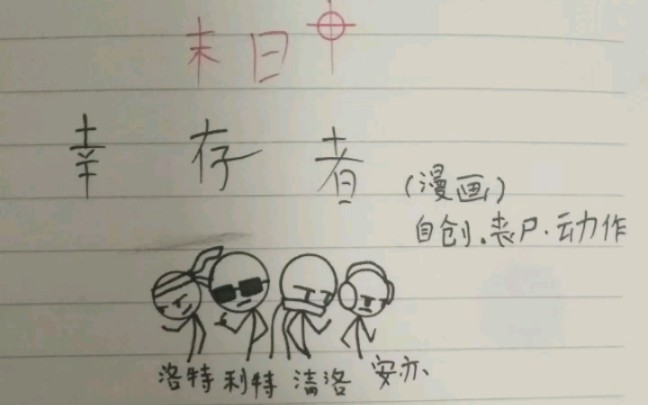 末日中
幸存者
(漫画)
自创.丧尸.动作
洛特 利特 清洛 安亦